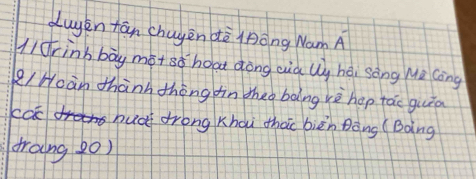 Luyện tập chuyên đề 1 Đông Nam Á
1/ Trình bày một số hoạt động của Uỷ hội sông Mê Công
2/ Hoàn thành thông tin theo bảng về hợp tác giữa
các nước trong khai thác biển Đông (Bảng
trang 20)